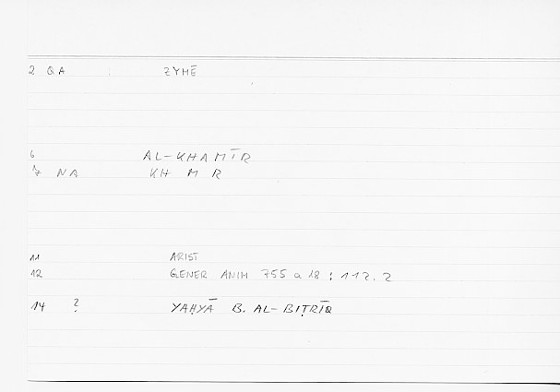 2 QA ZYMĒ
6 AL-KHAMĪR
7 NA KH M R
11 ARIST
12 GENER ANIM 755 a 18 : 112.2
14 ? YAḤYĀ B. AL-BIṬRĪQ